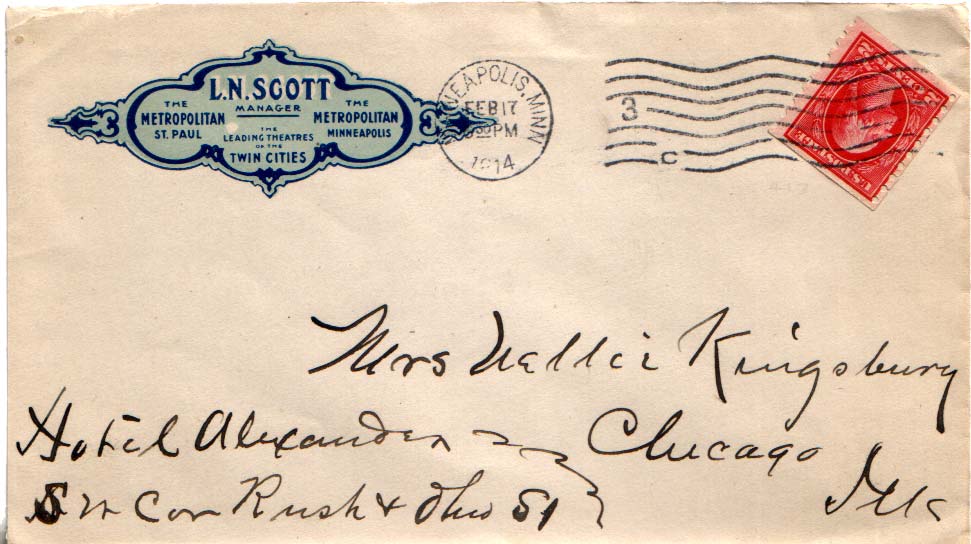 L.N. SCOTT
MANAGER
THE
METROPOLITAN
ST. PAUL
THE
LEADING THEATRES
OF THE
TWIN CITIES
THE
METROPOLITAN
MINNEAPOLIS
MINNEAPOLIS, MINN
FEB 17
PM
1914
3
C
Mrs Nellie Kingsbury
Hotel Alexander Chicago
S W Cor Rush & Ohio St Ills